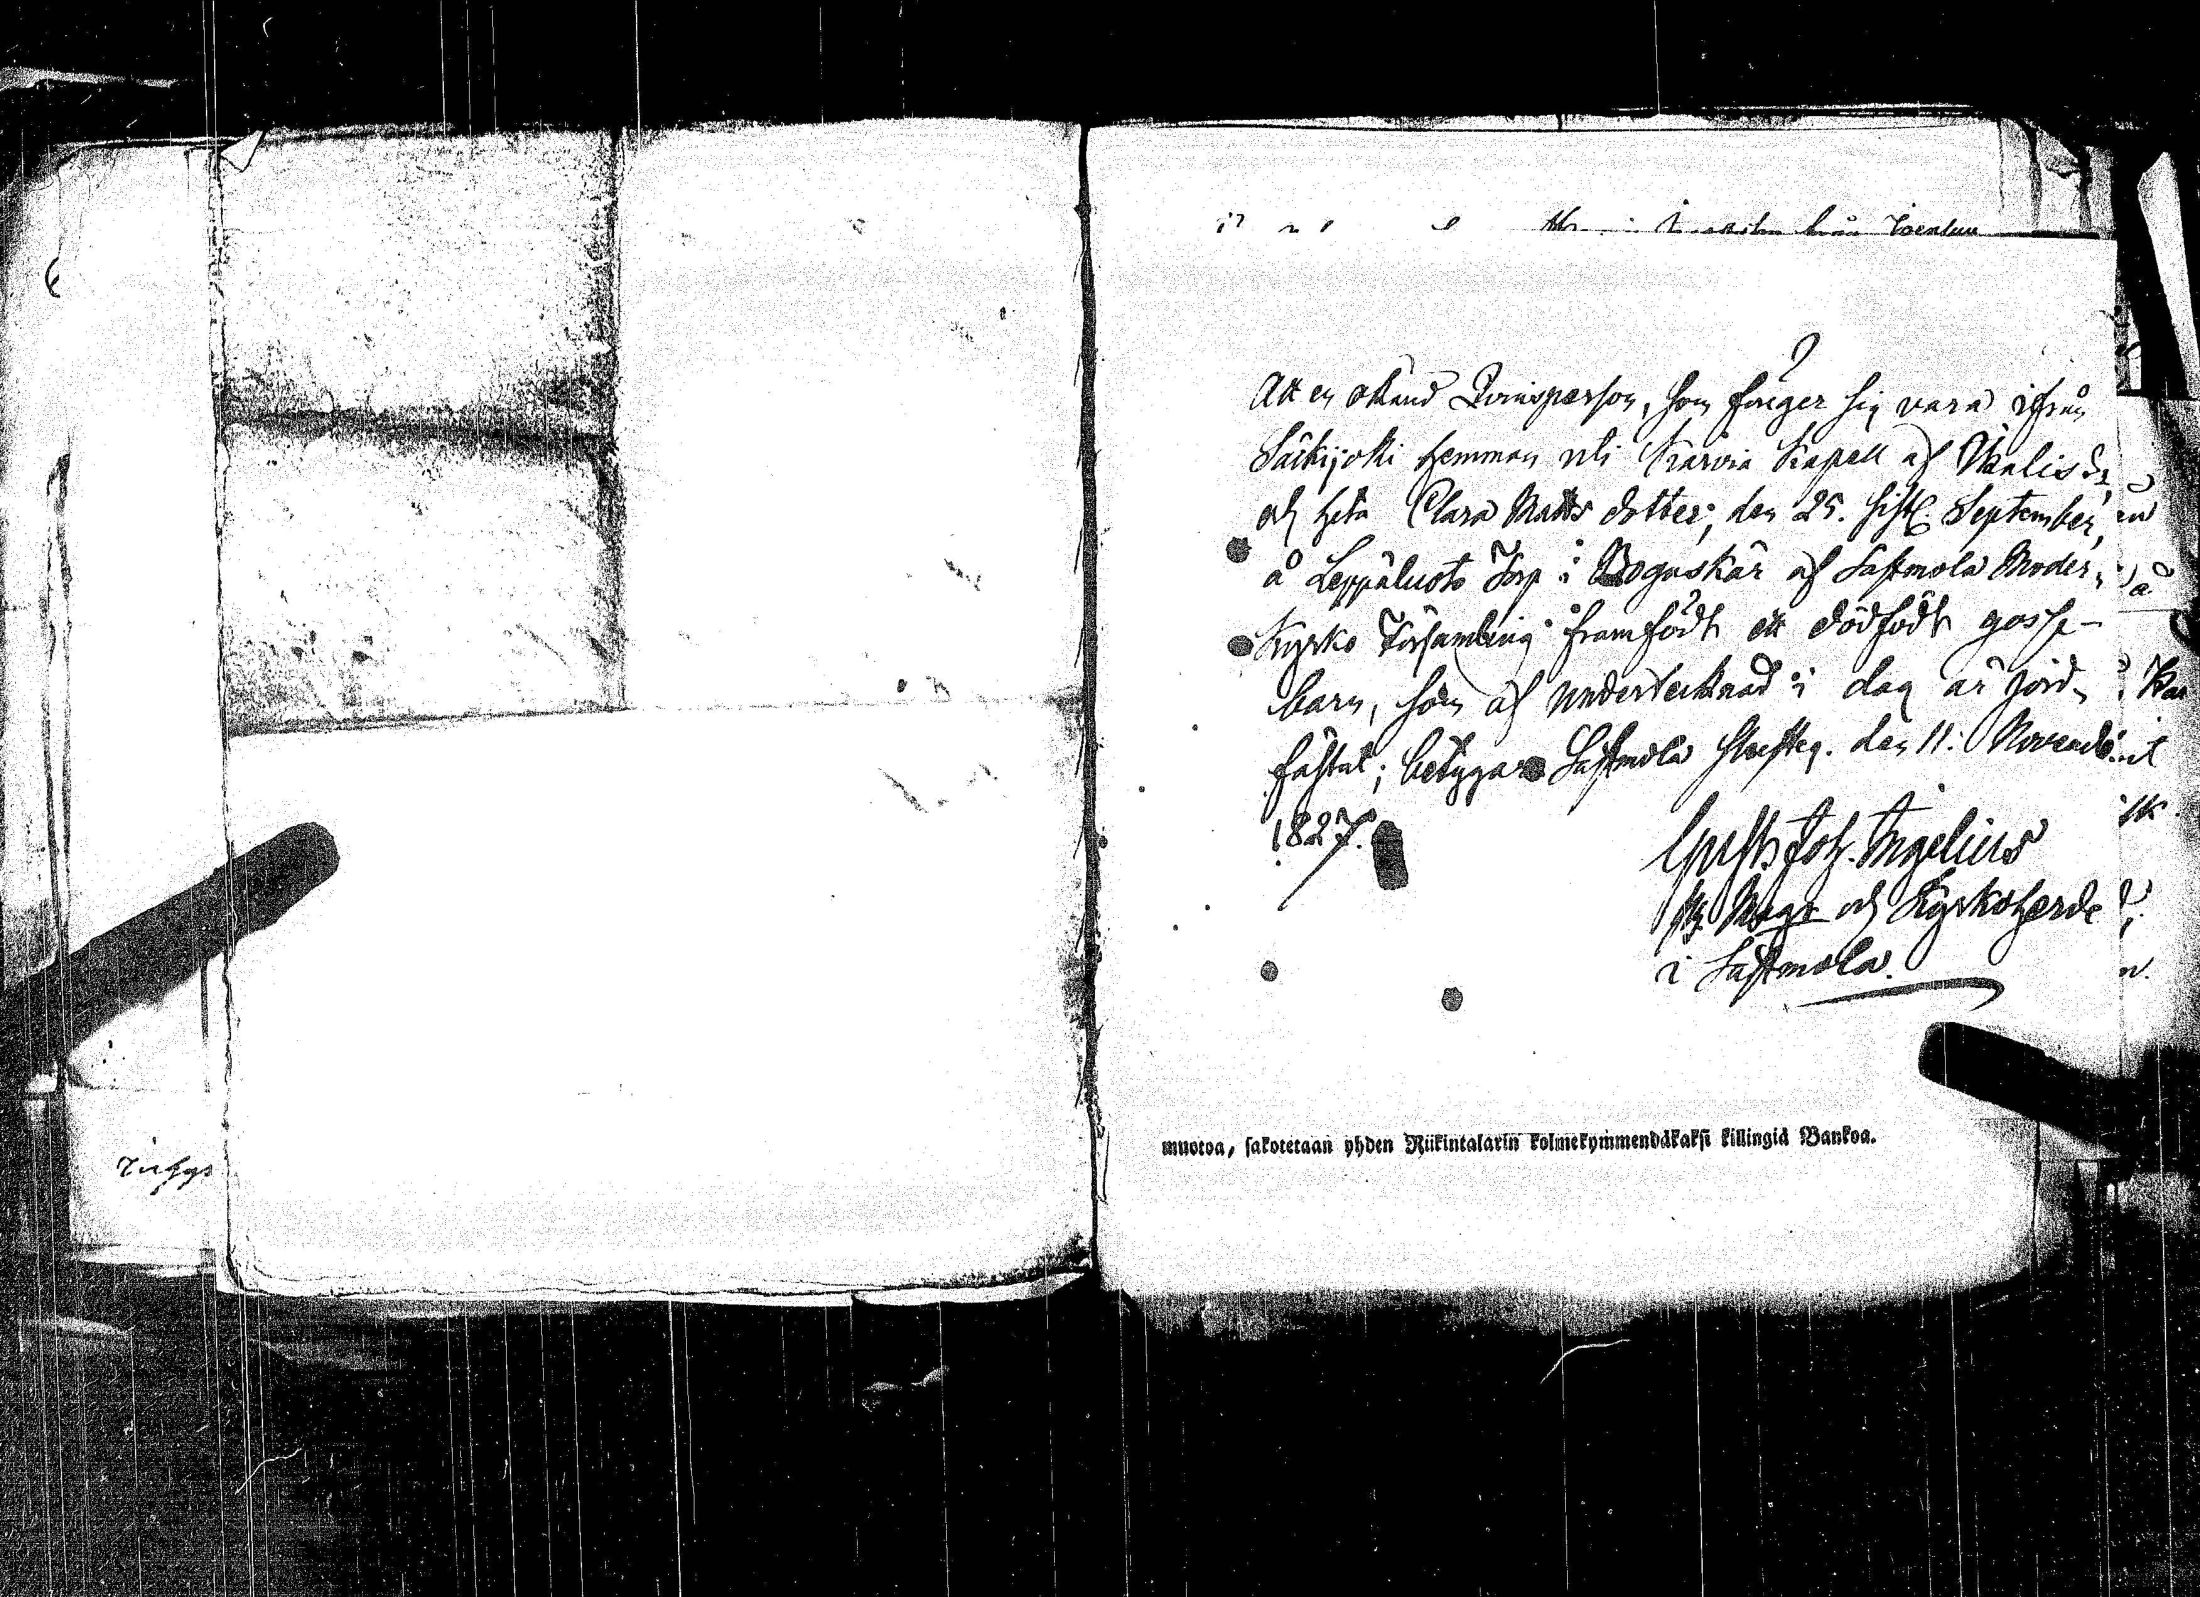 från
Att en okänd Qvinsperson, som föreger sig vara ifrån
Säkijoki hemman uti Karvia Kapell af Ikalis Sn,
och heta Clara Matts dotter; den 25. sistl. September,
å Leppäluoto Torp i Bogaskär af Sastmola Moder-
Kyrko Församling framfödt ett dödfödt gosse-
barn, som af undertecknad i dag är jord-
fästat; betygar Sastmola den 11. Novemb.
1827.
Gust. Joh. Ingelius
Mag. och Kyrkoherde
i Sastmola.
muotoa, sakotetaan yhden Riikintalarin kolmekymmendäkaksi killingiä Bankoa.